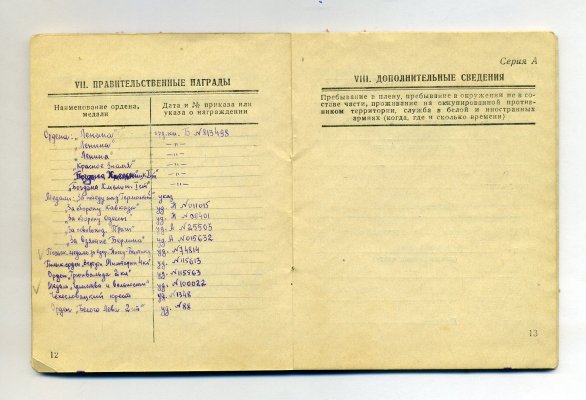 VII. ПРАВИТЕЛЬСТВЕННЫЕ НАГРАДЫ
Наименование ордена, медали
Дата и № приказа или указа о награждении
Ордена: „Ленина" орд. кн. Б №913498
„Ленина" —„—
„Ленина" —„—
„Красное Знамя" —„—
—„—
„Богдана Хмельн. Iст" —„—
Медали: За победу над Германией указ
„За оборону Кавказа" уд. А №011015
„За оборону Одессы" уд.
„За освобожд. Праги" уд. А №25503
„За взятие Берлина" уд. А №015632
уд. №74814
уд. №115613
Орден „Грюнвальда 2 кл" уд. №115563
уд. №100022
Чехословацкий крест уд. №1348
Орден „Белого Льва 2 ст" уд. №88
12
Серия А
VIII. ДОПОЛНИТЕЛЬНЫЕ СВЕДЕНИЯ
Пребывание в плену, пребывание в окружении не в со-
ставе части, проживание на оккупированной против-
ником территории, служба в белой и иностранных
армиях (когда, где и сколько времени)
13